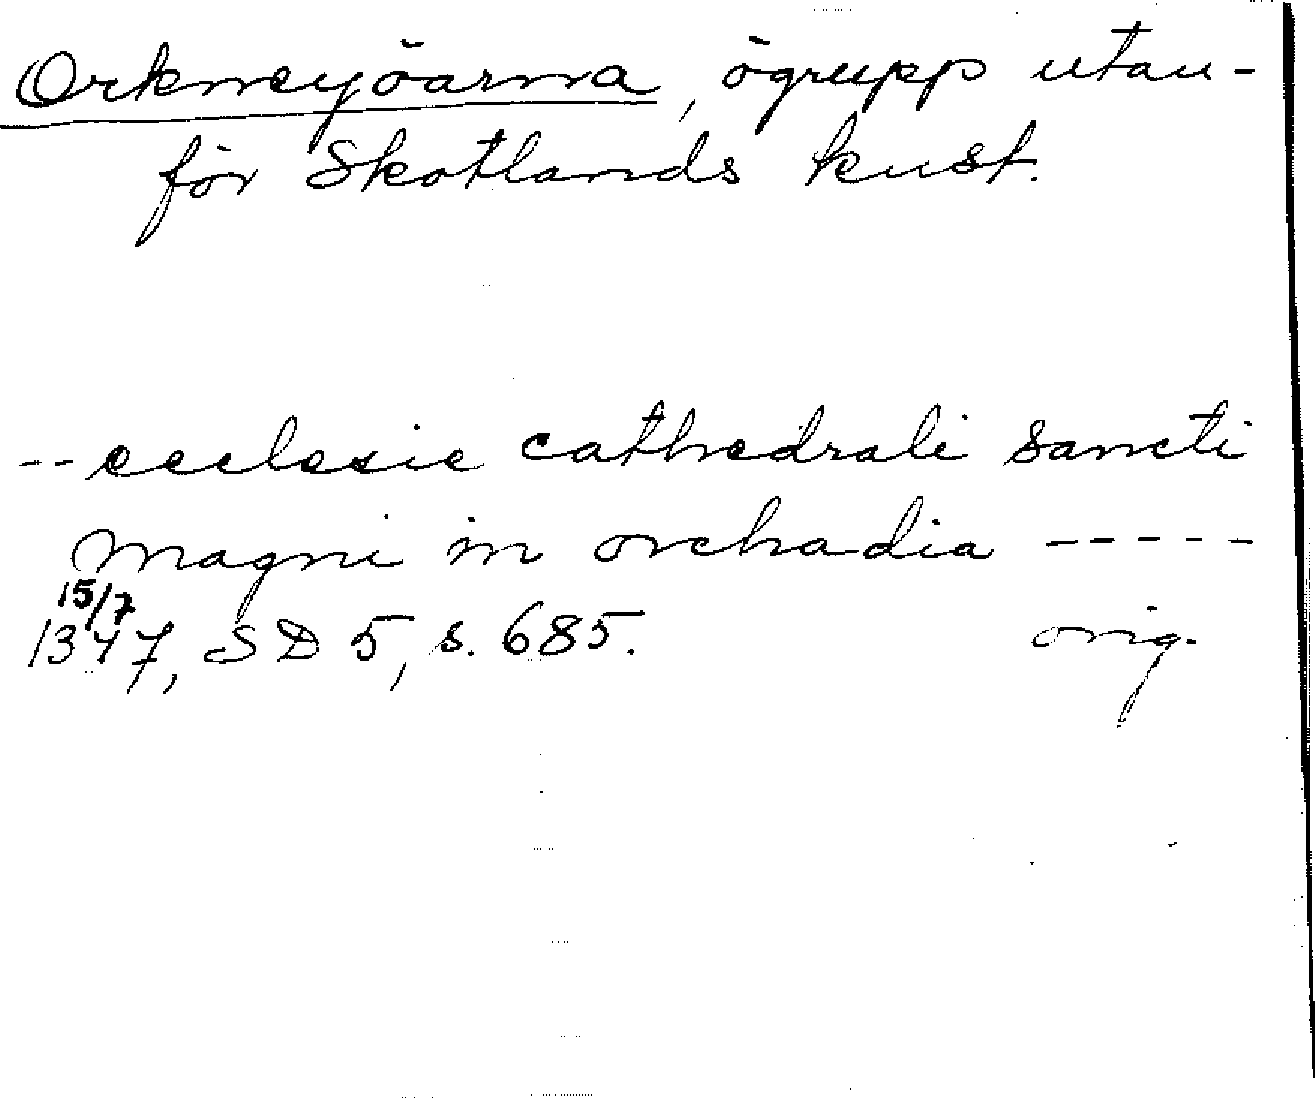 Orkneyöarna, ögrupp utan-
för Skotlands kust.
-- ecclesie cathedrali sancti
magni in orchadia -----
15/7
1347, SD 5, s. 685. orig.